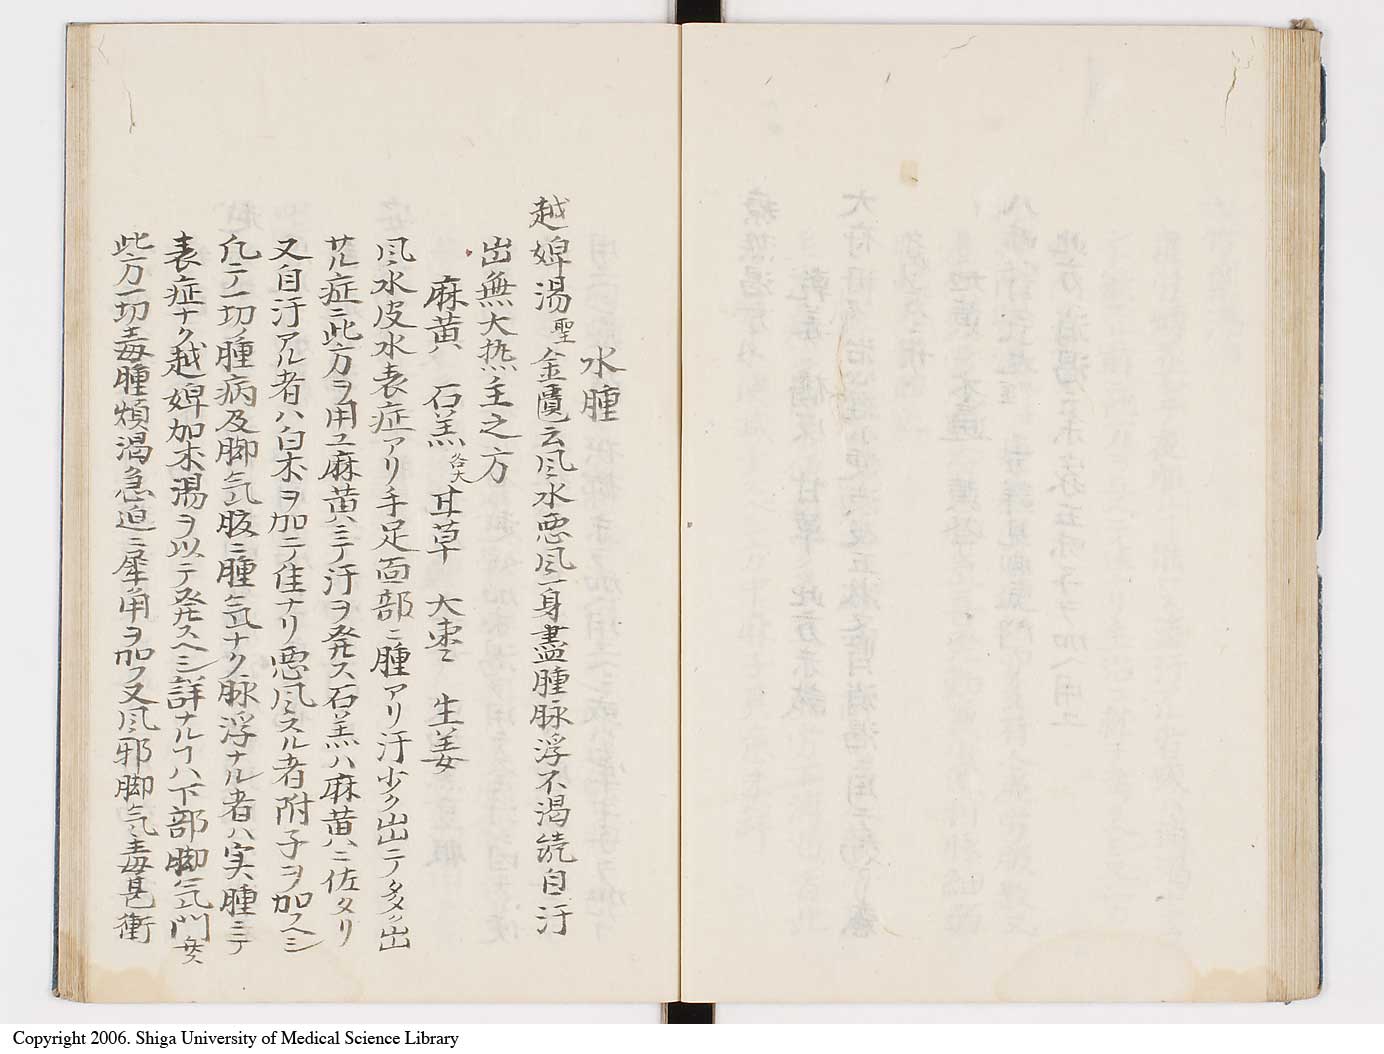 水腫
越婢湯 聖 金匱云風水悪風一身盡腫脉浮不渇続自汗
出無大热主之方
麻黄 石羔 各大 甘草 大枣 生姜
风水皮水表症アリ手足面部ニ腫アリ汗少ク出ニテ多ク出
サル症ニ此方ヲ用ユ麻黄ハミテ汗ヲ発ス石羔ハ麻黄ハニ佐タリ
又自汗アル者ハ白朮ヲ加ニテ佳ナリ悪风スル者附子ヲ加スヘシ
凡テ一切ノ腫病及脚气胺ニ腫气ナク脉浮ナル者ハ実腫ニテ
表症ナク越婢加朮湯ヲ以テ発スヘシ詳ナルヿハ下部脚气門
此方一切ノ毒腫煩渇急迫ニ犀角ヲ加フ又风邪脚气毒甚衝
Copyright 2006. Shiga University of Medical Science Library